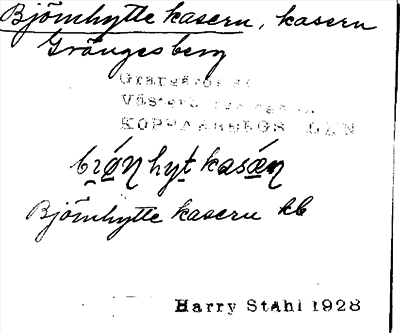 Björnhytte kasern, kasern
Grängesberg
Grangärde
Västerb
KOPPARBERGS LÄN
Björnhytte kasern kb
Harry Ståhl 1928